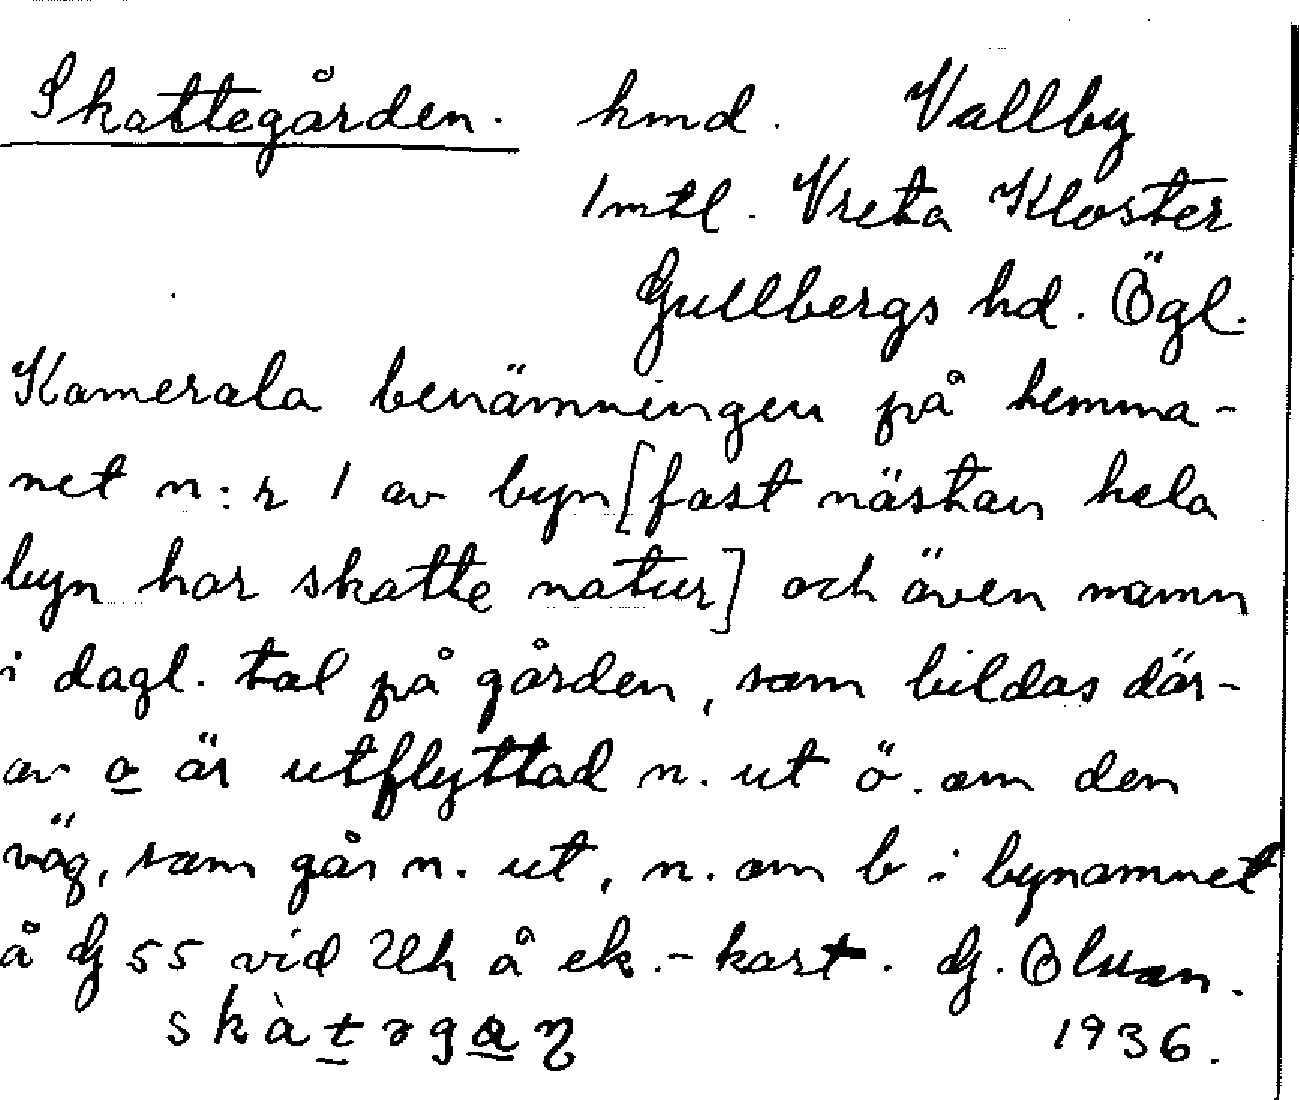 Skattegården. hmd. Vallby
1 mtl. Vreta Kloster
Gullbergs hd. Ögl.
Kamerala benämningen på hemma-
net n:r 1 av byn [fast nästan hela
byn har skatte natur] och även namn
i dagl. tal på gården, som bildas där-
av o är utflyttad n. ut ö. om den
väg, som går n. ut, n. om b i bynamnet
å G 55 vid Uh å ek.-kart. G. Olsson.
skàtəga̲ɳ 1936.